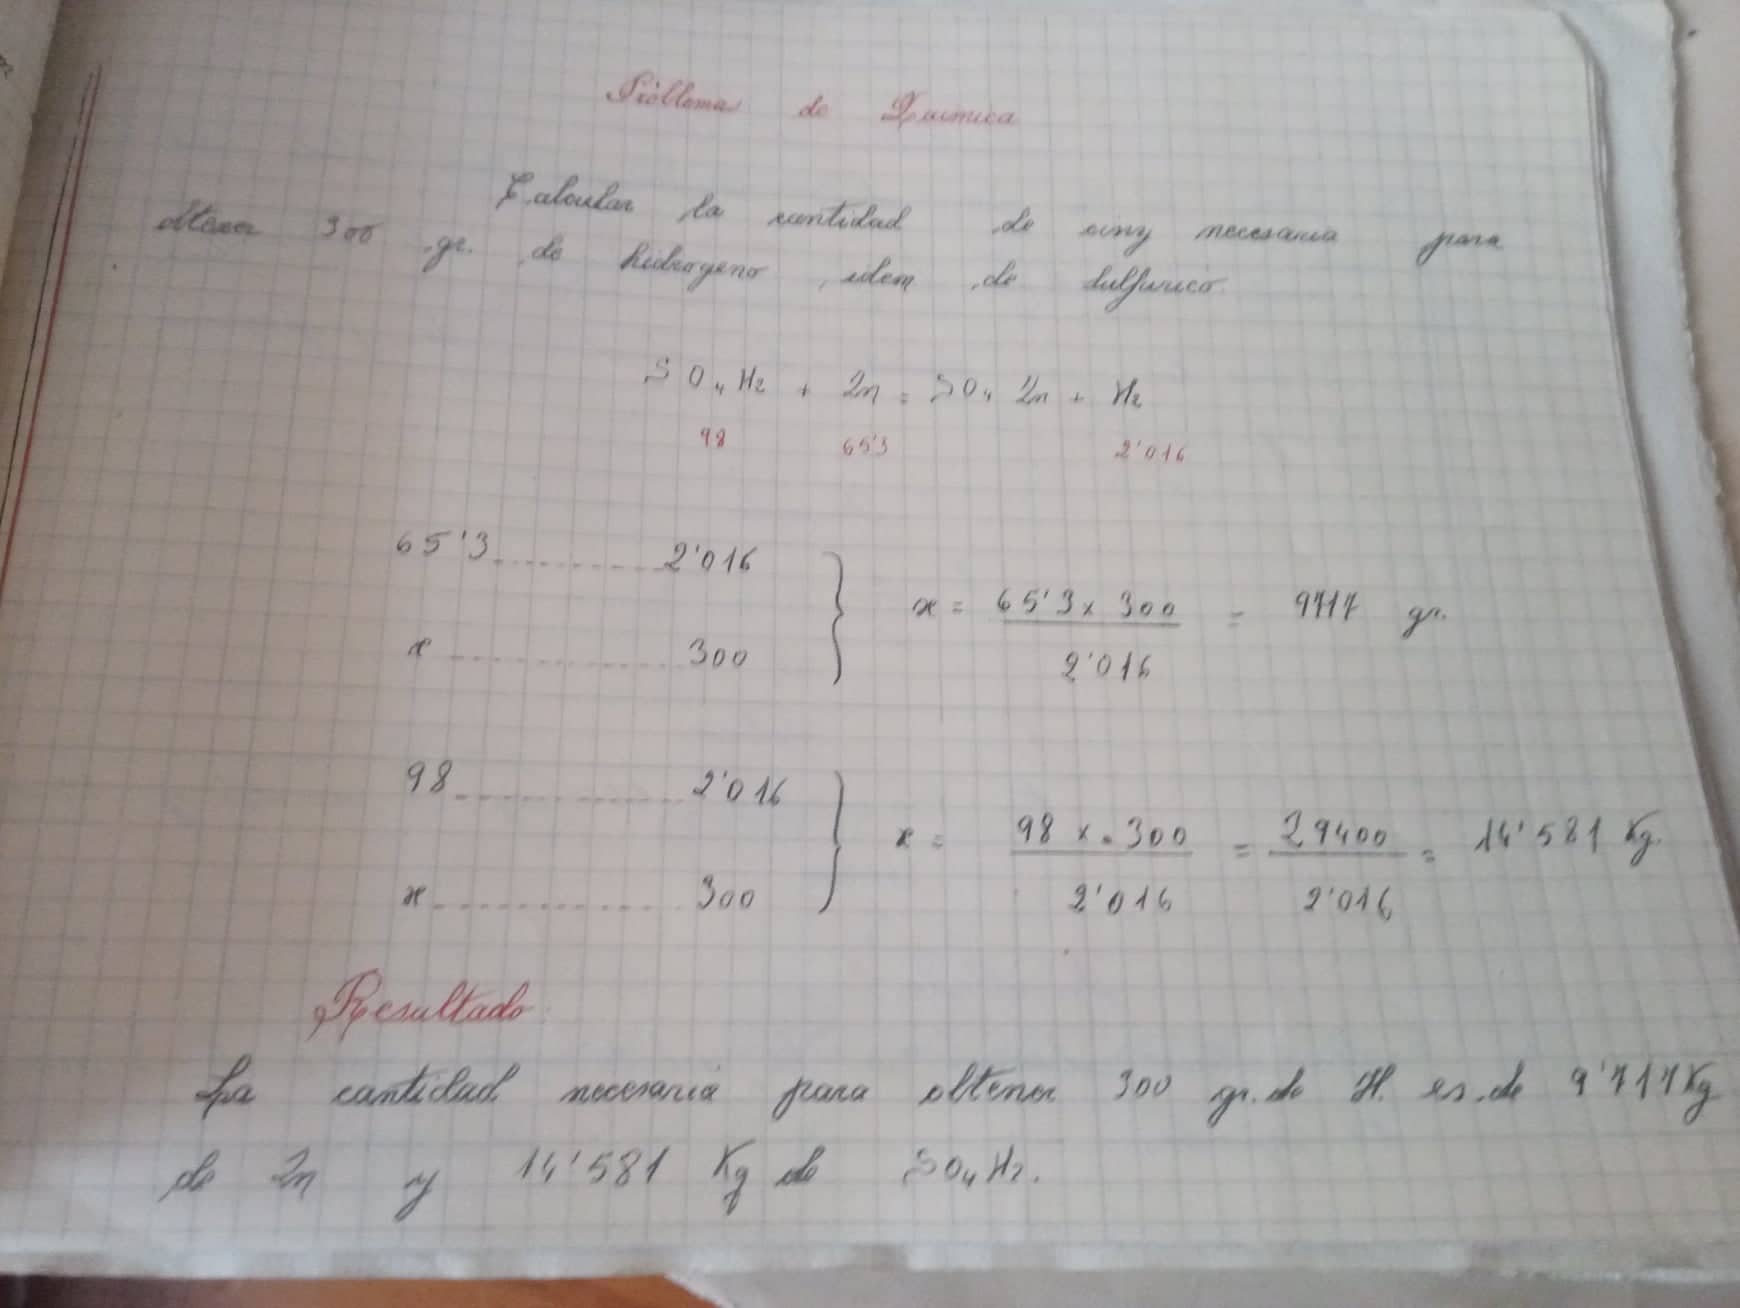 Problema de Quimica
Calcular la cantidad de cinz necesaria para
obtener 300 gr. de hidrogeno, idem de sulfurico.
SO₄H₂ + Zn = SO₄Zn + H₂
98 65'3 2'016
65'3 ........... 2'016
x = 65'3 x 300 / 2'016 = 9717 gr.
x ........... 300
98 ........... 2'016
x = 98 x 300 / 2'016 = 29400 / 2'016 = 14'581 Kg.
x ........... 300
Resultado
La cantidad necesaria para obtener 300 gr. de H. es de 9'717 Kg
de Zn y 14'581 Kg de SO₄H₂.